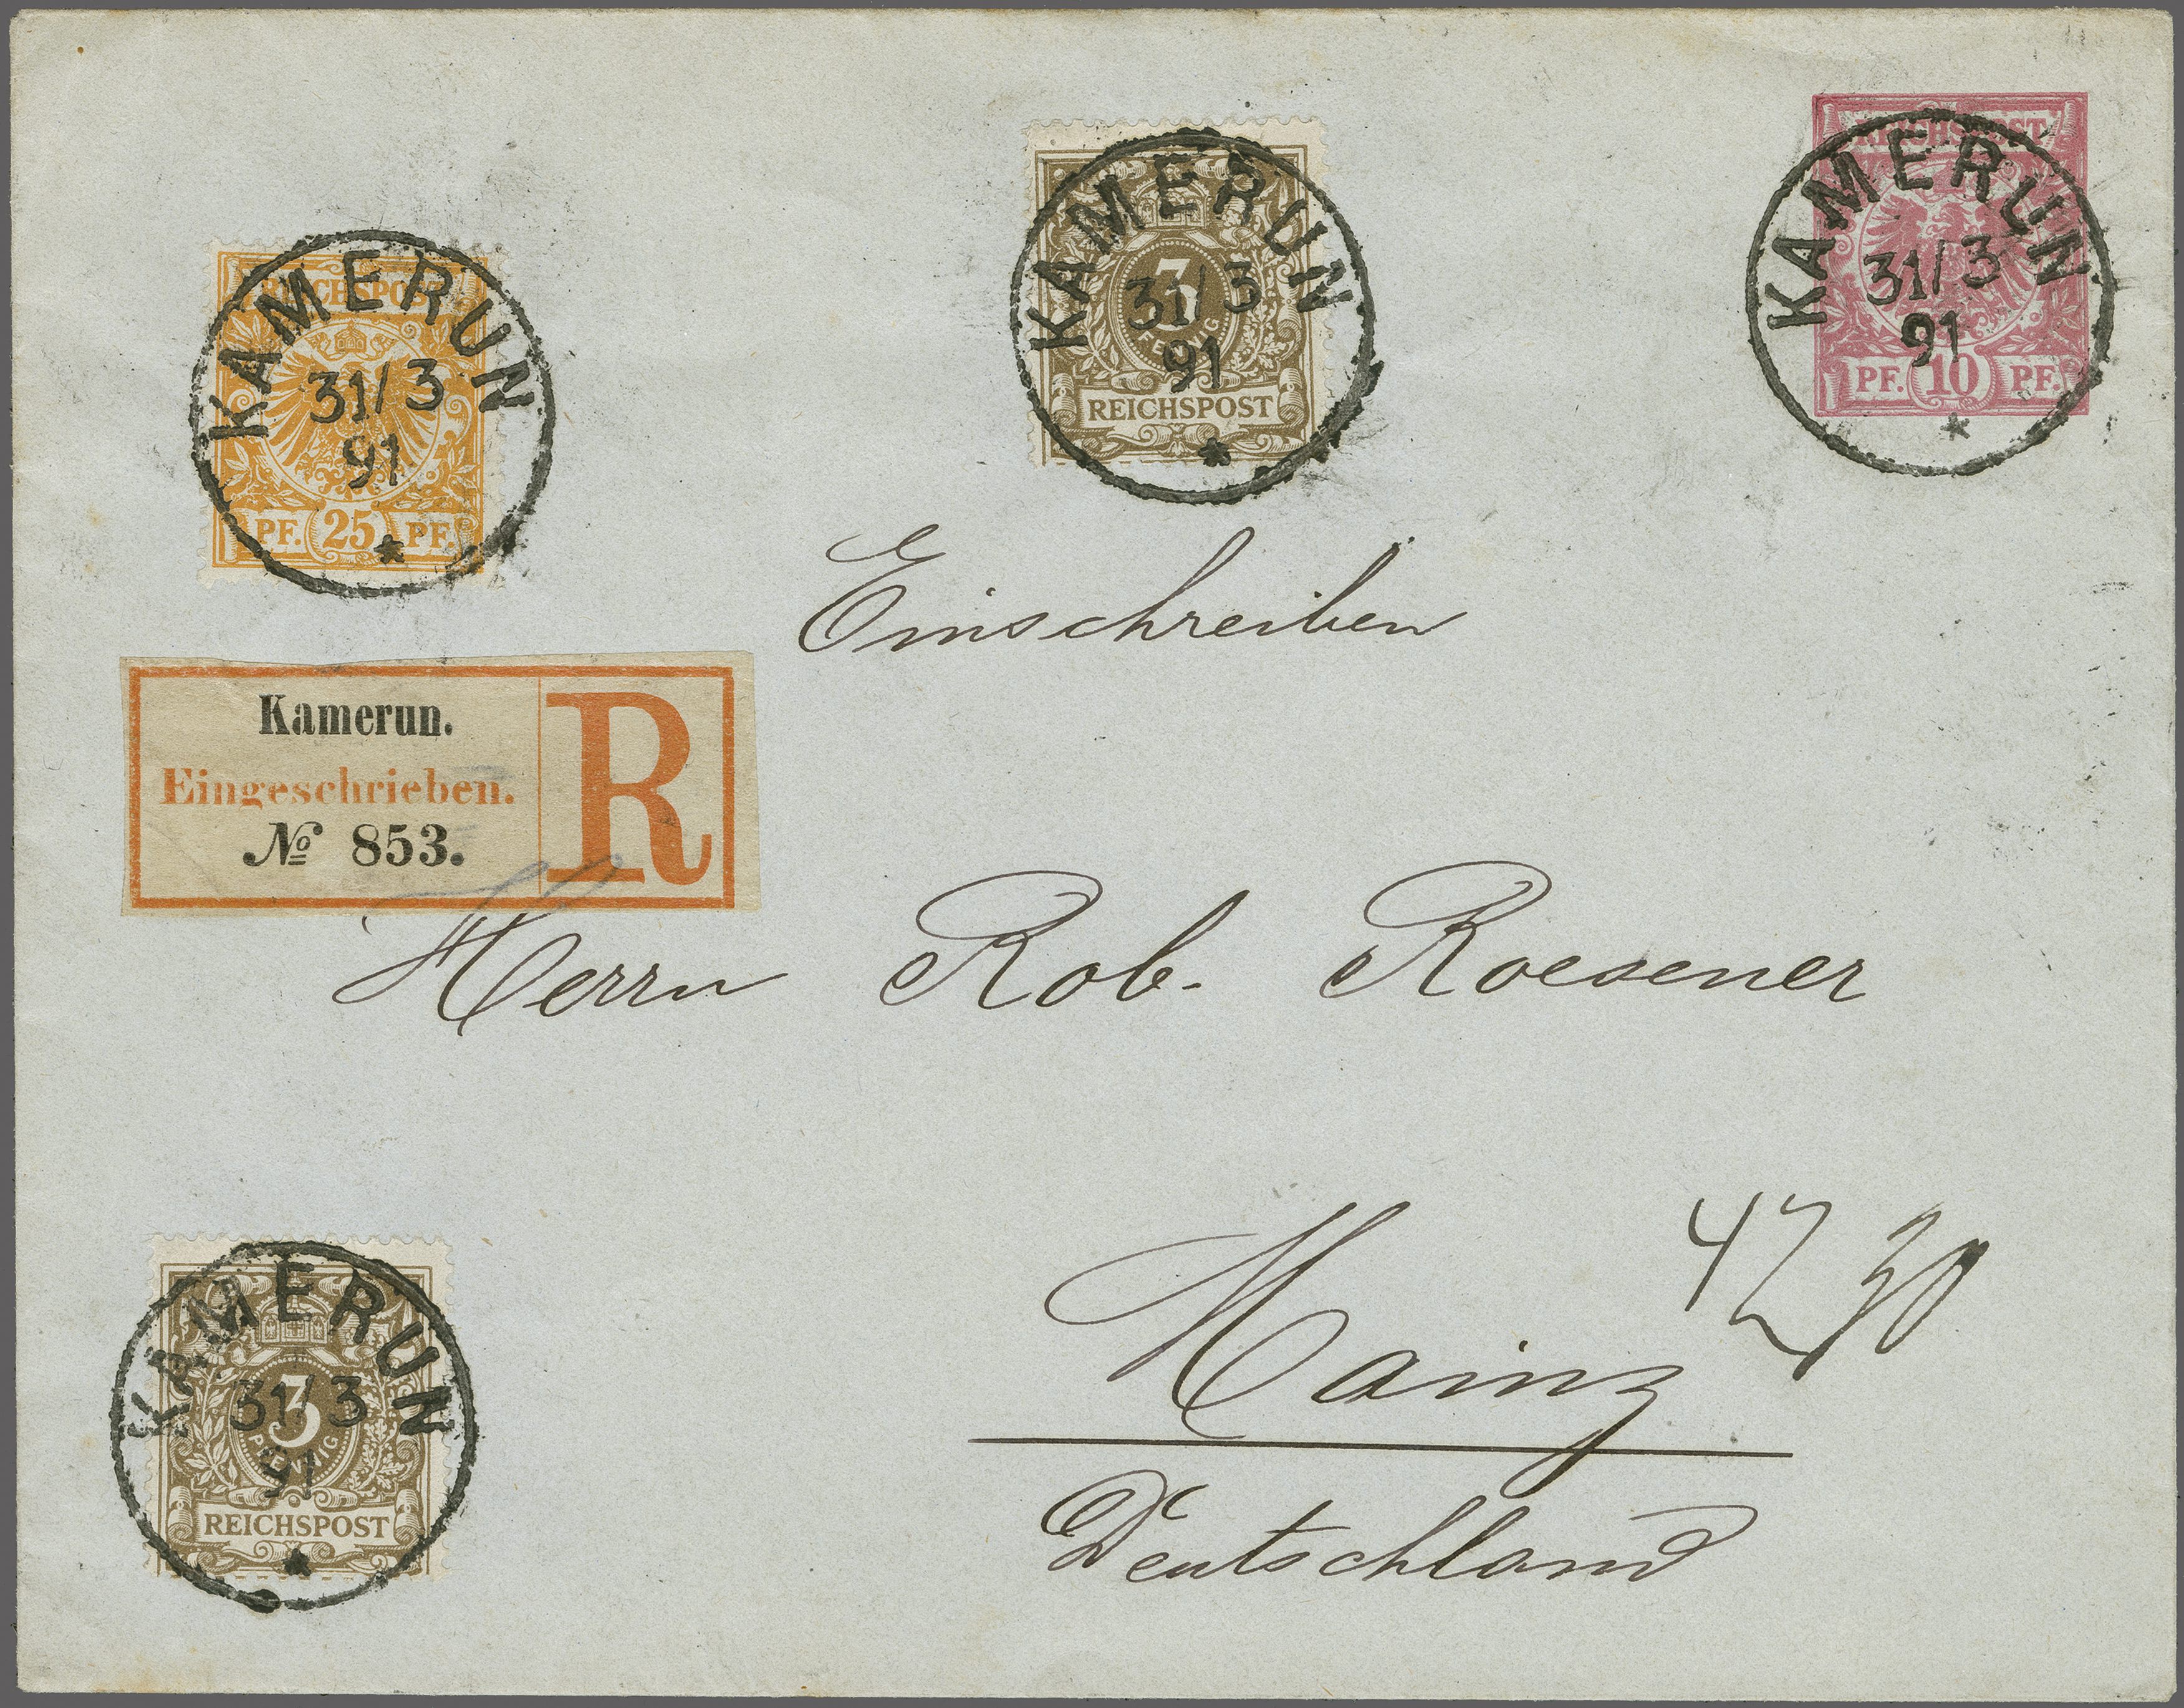 REICHSPOST
PF. 10 PF.
KAMERUN
31/3
91
3
PFENNIG
REICHSPOST
KAMERUN
31/3
91
REICHSPOST
PF. 25 PF.
KAMERUN
31/3
91
Einschreiben
Kamerun.
Eingeschrieben.
№ 853.
R
Herrn Rob. Roesener
Mainz
Deutschland
3
PFENNIG
REICHSPOST
KAMERUN
31/3
91